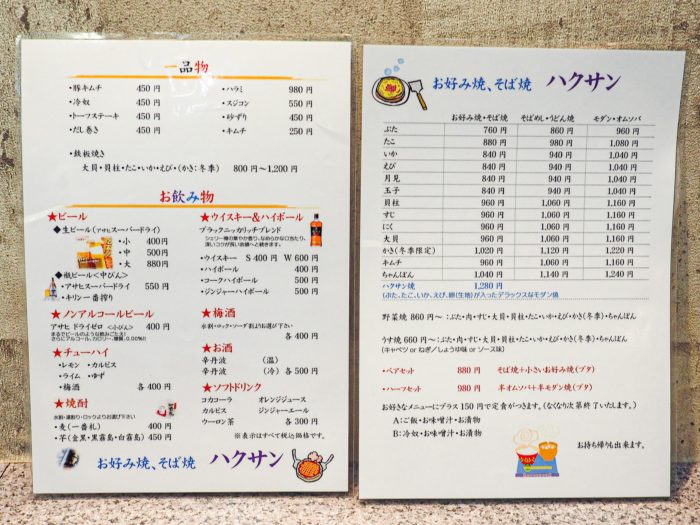 一品物
・豚キムチ 450円 ・ハラミ 980円
・冷奴 450円 ・スジコン 550円
・トーフステーキ 450円 ・砂ずり 450円
・だし巻き 450円 ・キムチ 250円
・鉄板焼き
大貝・貝柱・たこ・いか・えび・(かき:冬季) 800円〜1,200円
お飲み物
★ビール
◆生ビール(アサヒスーパードライ)
・小 400円
・中 500円
・大 880円
◆瓶ビール<中びん>
・アサヒスーパードライ 550円
・キリン一番搾り
★ノンアルコールビール
アサヒ ドライゼロ <小びん> 400円
まるでビールのような飲みごたえ!
さらにアルコール、カロリー、糖質、0.00%!!
★チューハイ
・レモン ・カルピス
・ライム ・ゆず
・梅酒 各400円
★焼酎
水割・湯割り・ロックよりお選び下さい
・麦(一番札) 400円
・芋(金黒・黒霧島・白霧島) 450円
★ウイスキー&ハイボール
ブラックニッカリッチブレンド
シェリー樽の華やか香り、なめらかな口当たり、
深いコクが長い余韻へと続きます。
・ウイスキー S400円 W600円
・ハイボール 400円
・コークハイボール 500円
・ジンジャーハイボール 500円
★梅酒
水割・ロック・ソーダ割よりお選び下さい
各400円
★お酒
辛丹波 (温)
辛丹波 (冷) 各500円
★ソフトドリンク
コカコーラ オレンジジュース
カルピス ジンジャーエール
ウーロン茶 各300円
※表示はすべて税込価格です。
お好み焼、そば焼 ハクサン
お好み焼、そば焼 ハクサン
お好み焼・そば焼 そばめし・うどん焼 モダン・オムソバ
ぶた 760円 860円 960円
たこ 880円 980円 1,080円
いか 840円 940円 1,040円
えび 840円 940円 1,040円
月見 840円 940円 1,040円
玉子 840円 940円 1,040円
貝柱 960円 1,060円 1,160円
すじ 960円 1,060円 1,160円
にく 960円 1,060円 1,160円
大貝 960円 1,060円 1,160円
かき(冬季限定) 1,020円 1,120円 1,220円
キムチ 960円 1,060円 1,160円
ちゃんぽん 1,040円 1,140円 1,240円
ハクサン焼 1,280円
(ぶた、たこ、いか、えび、卵(生地)が入ったデラックスなモダン焼
野菜焼 860円〜 :ぶた・肉・すじ・大貝・貝柱・たこ・いか・えび・かき(冬季)・ちゃんぽん
うす焼 660円〜 :ぶた・肉・すじ・大貝・貝柱・たこ・いか・えび・かき(冬季)・ちゃんぽん
(キャベツ or ねぎ/しょうゆ味 or ソース味)
・ペアセット 880円 そば焼+小さいお好み焼(ブタ)
・ハーフセット 980円 半オムソバ+半モダン焼(ブタ)
お好きなメニューにプラス150円で定食がつきます。(なくなり次第終了いたします。)
A:ご飯・お味噌汁・お漬物
B:冷奴・お味噌汁・お漬物
お持ち帰りも出来ます。